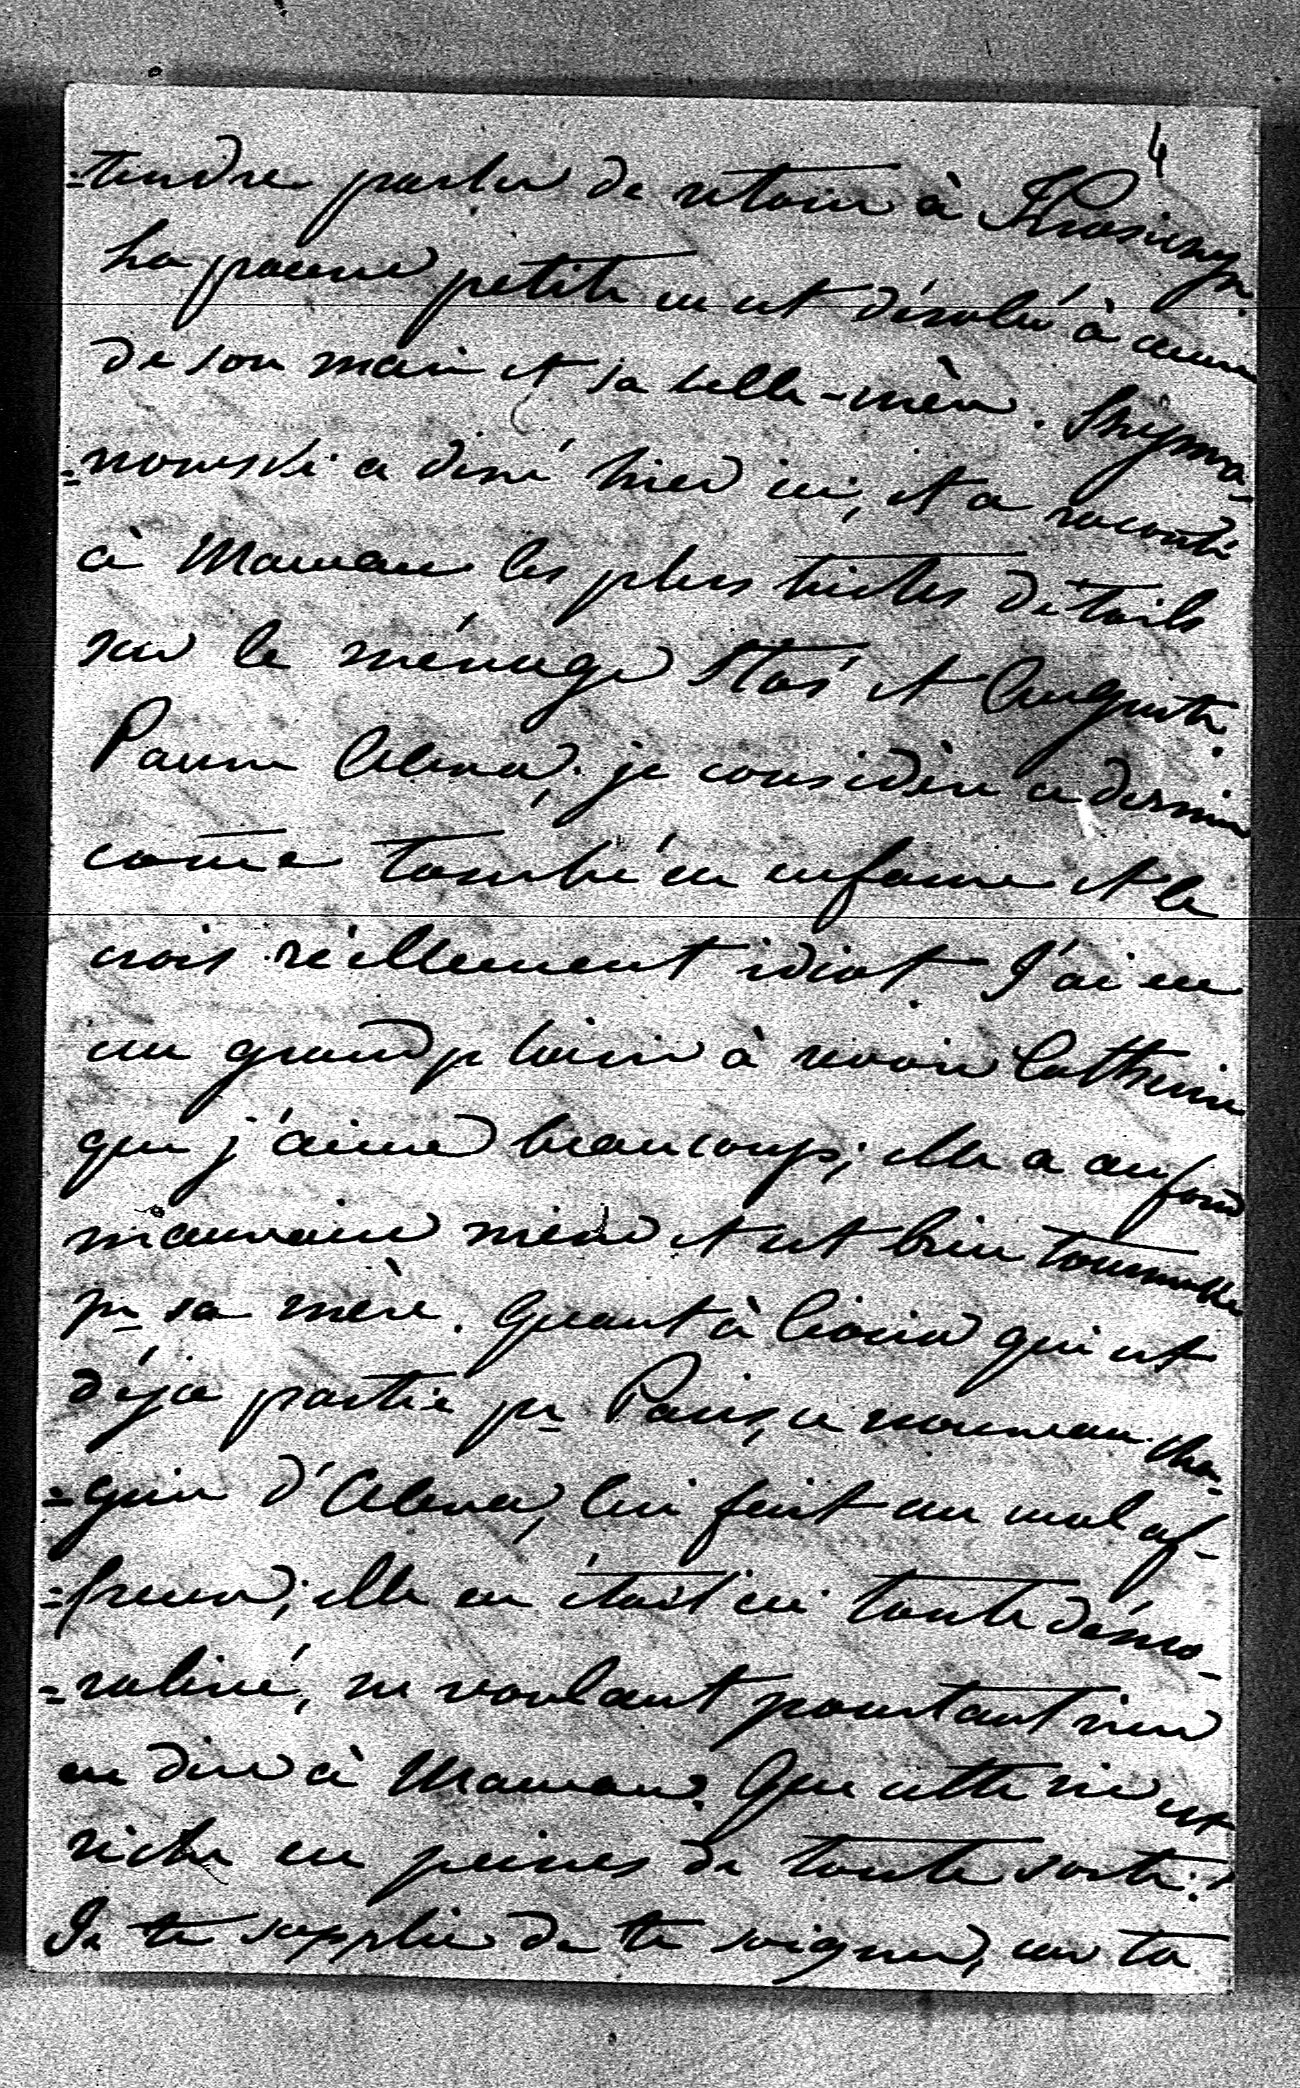 4
-tendre parler de retour à Krasiczyn.
La pauvre petite en est désolée à cause
de son mari et sa belle-mère. Szyma-
-nowski a diné hier ici, et a raconté
à Maman les plus tristes détails
sur le ménage Stas' et Auguste.
Pauvre Alena, je considère ce dernier
come tombé en enfance et le
crois réellement idiot. J'ai eu
un grand plaisir à revoir Catherine
que j'aime beaucoup; elle a au fond
mauvaise mine et est bien tourmentée
pr sa mère. Quant à qui est
déja partie pr Paris, ce nouveau cha-
-grin d'Alena, lui fait un mal af-
-freux; elle en était ici toute démo-
-ralisée, ne voulant pourtant rien
en dire à Maman. Que cette vie est
riche en peines de toute sorte!
Je te supplie de te soigner, car ta